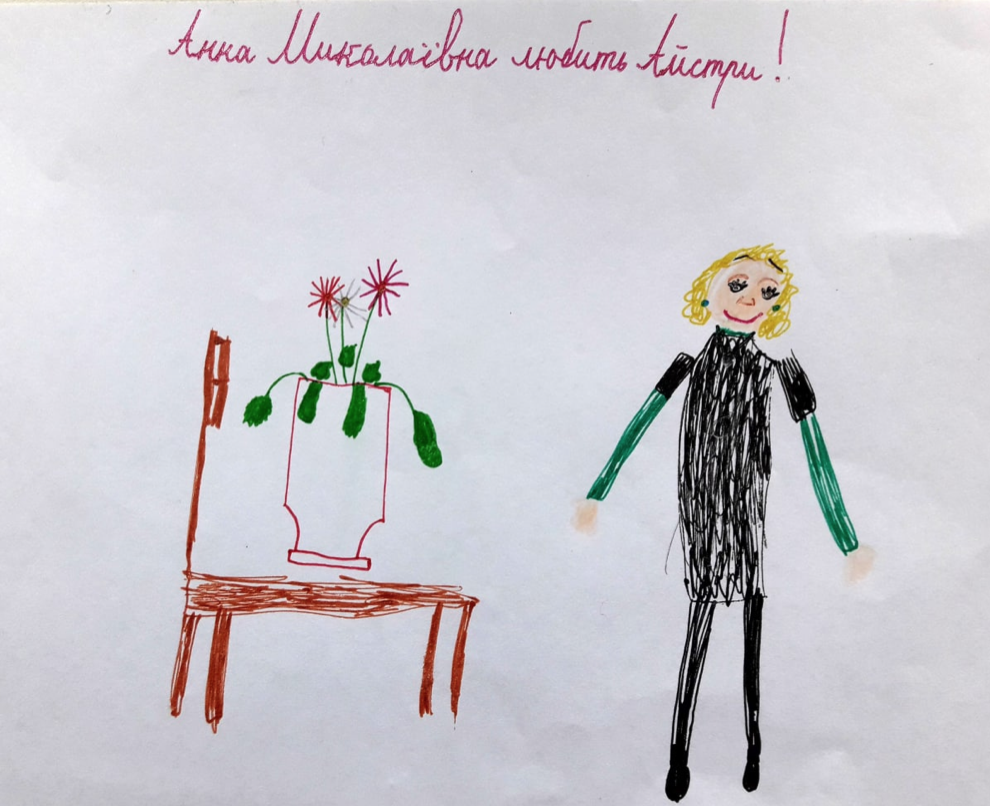 Анна Миколаївна любить Айстри!